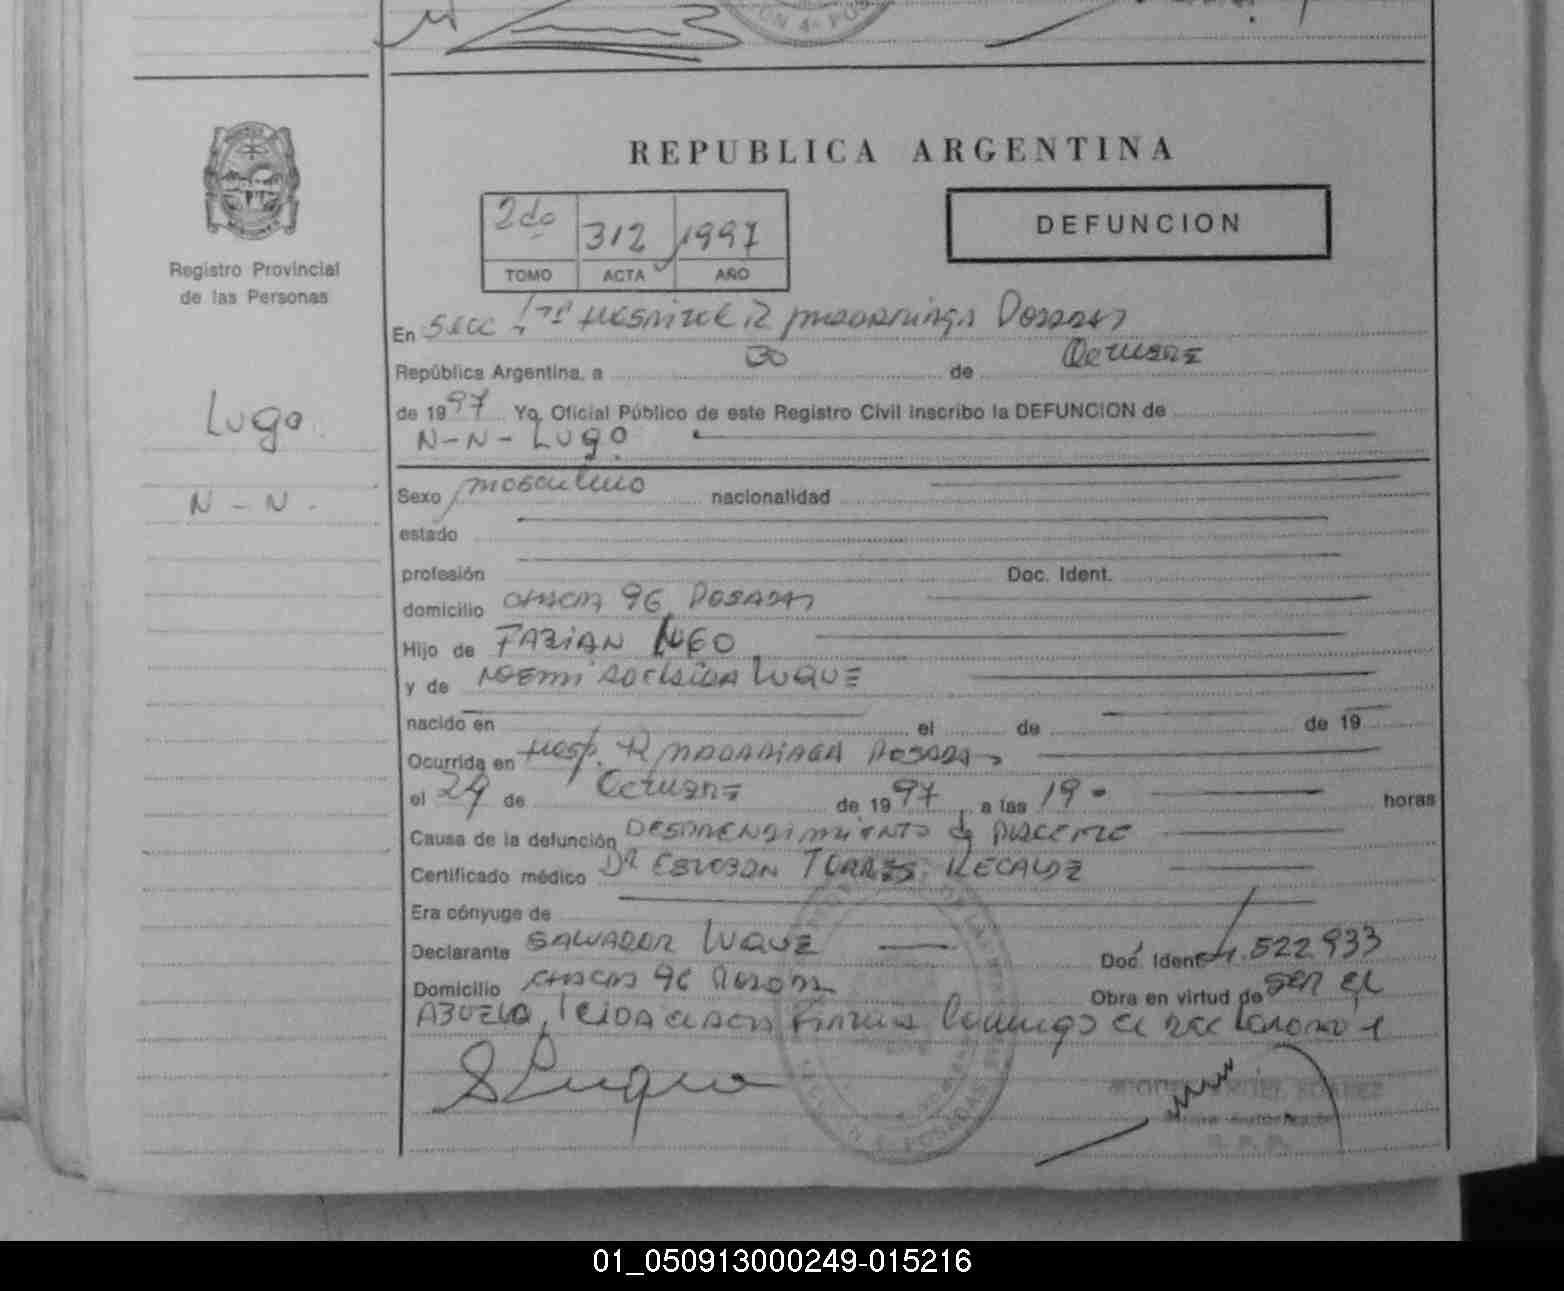 ON 4ª POS
REPUBLICA ARGENTINA
2do 312 1997
TOMO ACTA AÑO
DEFUNCION
Registro Provincial
de las Personas
En Secc Posadas
República Argentina, a 30 de Octubre
de 1997 Yo, Oficial Público de este Registro Civil inscribo la DEFUNCION de
N-N- Lugo
Lugo
N-N-
Sexo masculino nacionalidad
estado
profesión Doc. Ident.
domicilio chacra 96 Posadas
Hijo de FABIAN LUGO
y de NOEMI LUQUE
nacido en el de de 19
Ocurrida en Hosp. R MADARIAGA POSADAS
el 29 de Octubre de 1997, a las 19- horas
Causa de la defunción DESPRENDIMIENTO de PLACENTA
Certificado médico DR ESTEBAN TORRES RECALDE
Era cónyuge de
Declarante SALVADOR LUQUE Doc. Ident. 522.933
Domicilio chacra 96 Posadas Obra en virtud de SER EL
ABUELO, leida el acta firma conmigo el declarante
S Luque
01_050913000249-015216